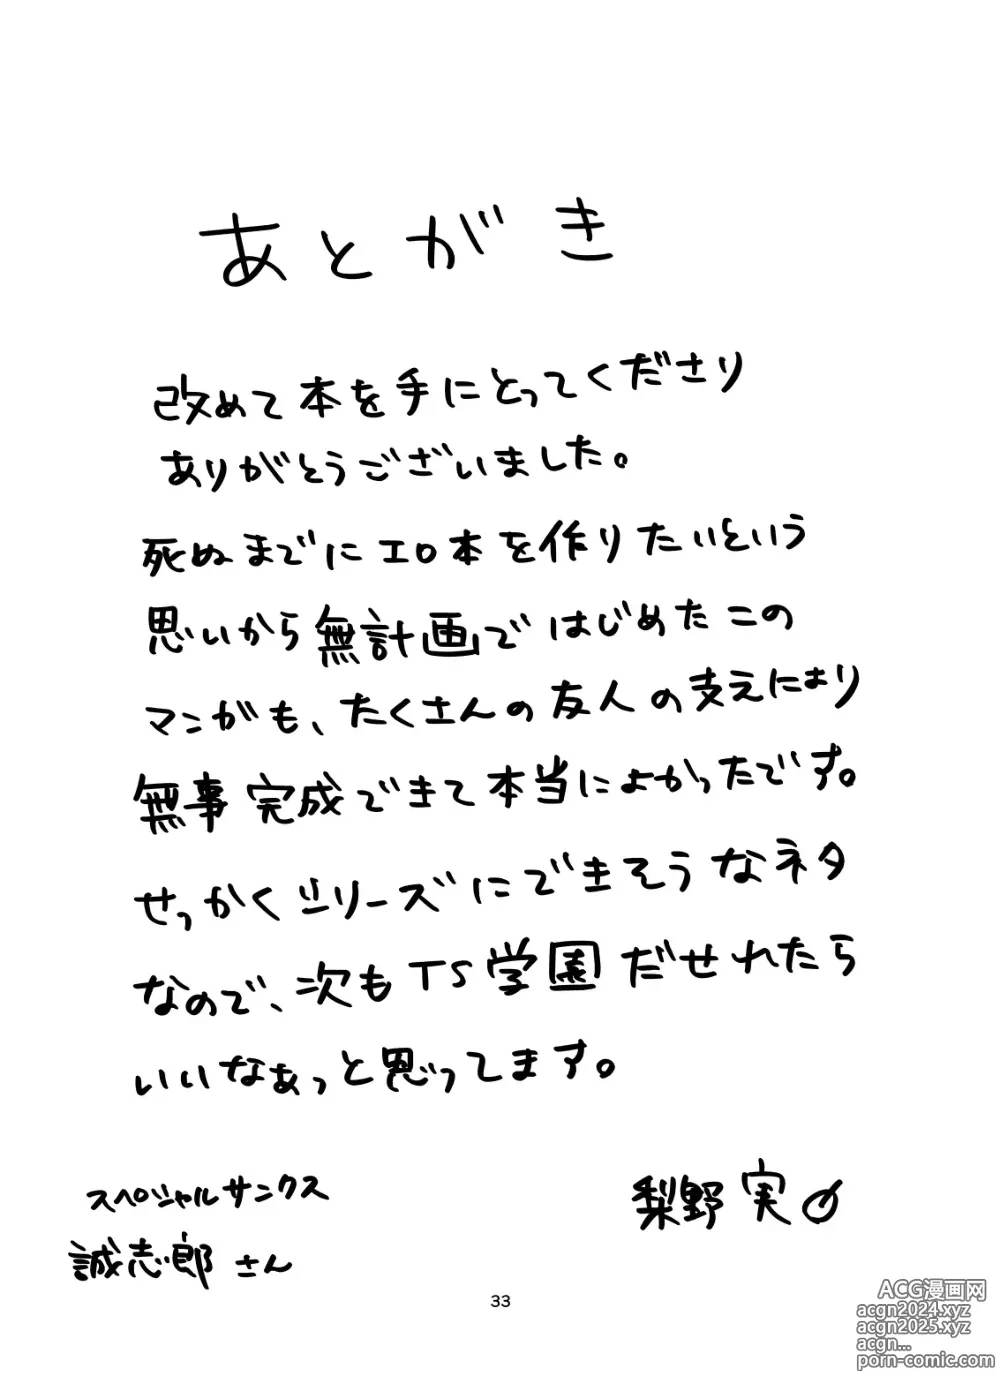 あとがき
改めて本を手にとってくださり
ありがとうございました。
死ぬまでにエロ本を作りたいという
思いから無計画ではじめたこの
マンガも、たくさんの友人の支えにより
無事完成できて本当によかったです。
せっかくシリーズにできそうなネタ
なので、次もTS学園だせれたら
いいなぁっと思ってます。
スペシャルサンクス
誠志郎さん
梨野実
33
ACG漫画网
acgn2024.xyz
acgn2025.xyz
acgn...
porn-comic.com